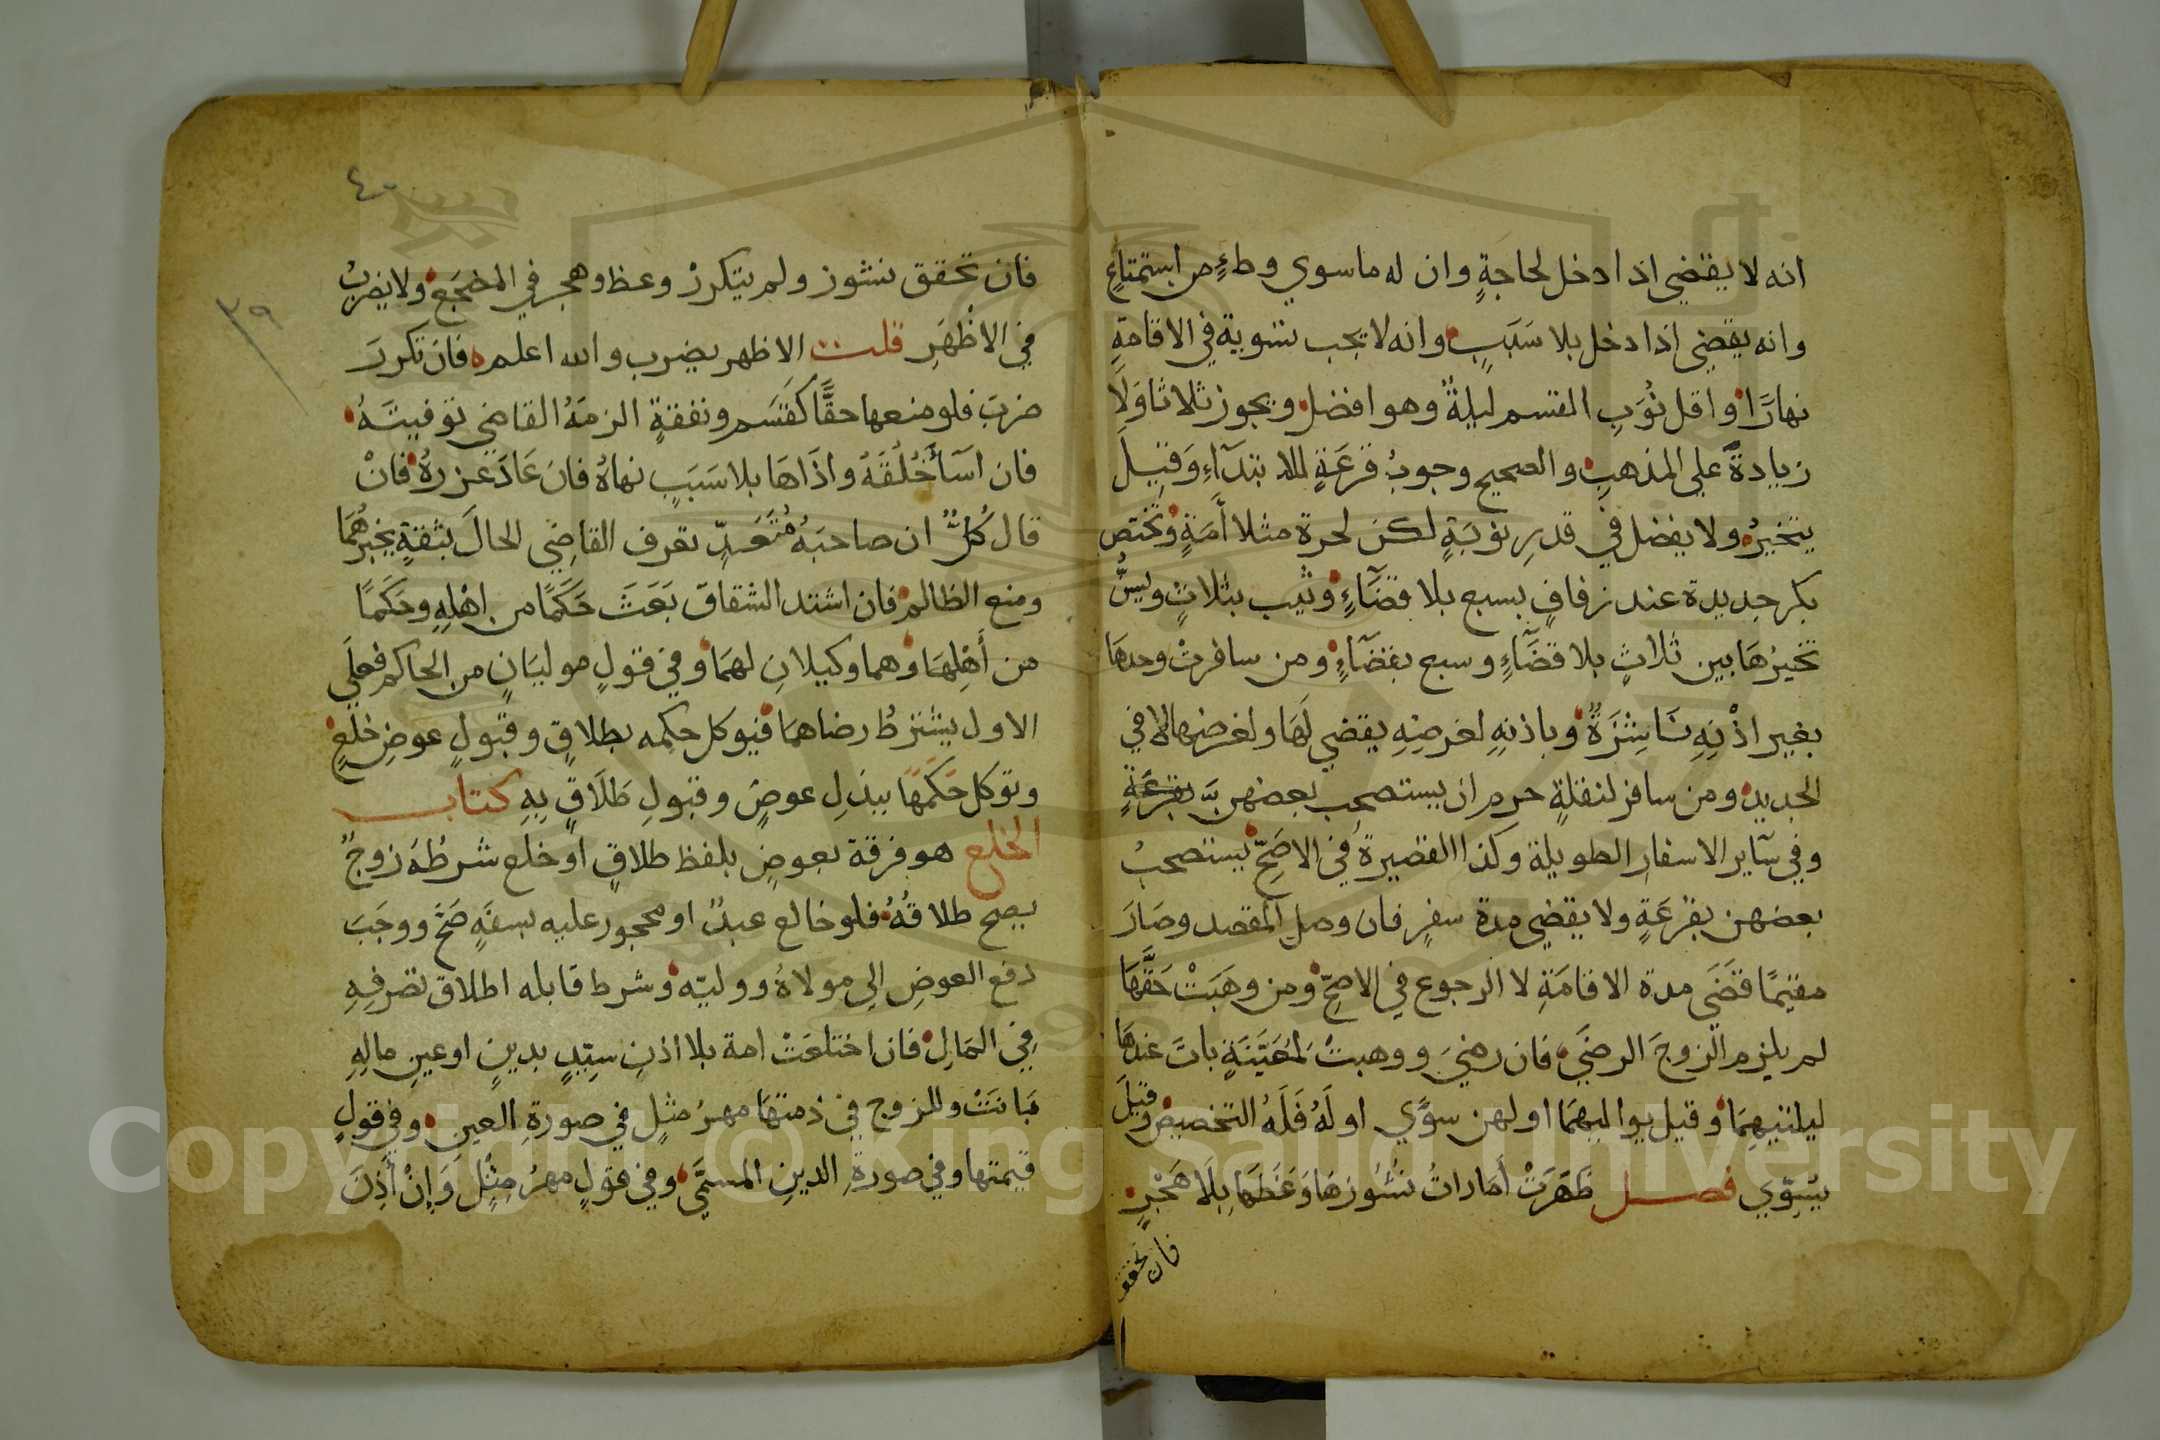 انه لا يقضي اذا دخل لحاجةٍ وان له ما سوي وطءٍ من استمتاعٍ
وانه يقضي اذا دخل بلا سَبَبٍ وانه لا تجب تسوية في الاقامةِ
نهارًا واقل نُوَبِ القسم ليلةٌ وهو افضل ويجوز ثلاثا وَلَا
زيادةً علي المذهبِ والصحيح وجوبُ قرعَةٍ للابتدآءِ وَقِيلَ
يتخيرُ ولا يفضل في قدرِ نوبَةٍ لكن لحرة مثلا أَمَةٍ وتختص
بكر جديدة عند زفافٍ بسبع بلا قضَآءٍ وثيب بثلاثٍ ويسنُّ
تخييرُهَا بين ثلاثٍ بلا قضَآءٍ وسبع بقضَآءٍ ومن سافرتْ وحدهَا
بغير اذْنِهِ نَاشِزَةٌ وباذنهِ لغرضِهِ يقضي لَهَا ولغرضها لا في
الجديد ومن سافر لنقلةٍ حرم ان يستصحب بعضهن بقرعَةٍ
وفي سآير الاسفار الطويلة وكذا القصيرةُ في الاصَحِّ يستصحبُ
بعضهن بقرعَةٍ ولا يقضي مدة سفرٍ فان وصل المقصد وصَارَ
مقيمًا قضَي مدة الاقامَةِ لا الرجوع في الاصحِّ ومن وهَبَتْ حَقَّهَا
لم يلزم الزوجَ الرضَي فان رضيَ ووهبتْ لمُعَيَّنَةٍ باتَ عندهَا
ليلتيهِمَا وقيل يواليهِمَا او لهن سوَّي او لَهُ فَلَهُ التخصيص وقيلَ
يسَوِّي فصل ظَهَرَتْ أَمَاراتُ نُشُوزِهَا وَعَظَهَا بِلَا هَجْرٍ
فان تحقق
٤٠
٣٩
فان تحقق نشوز ولم يتكررْ وعظ وهجر في المضجَع ولا يضربُ
في الاظهَرِ قلت الاظهر يضرب والله اعلم فان تكررَ
ضربَ فلو منعها حقًّا كَقَسَم ونفقةٍ الزمَهُ القاضي توفيتَهُ
فان اسَآ خُلُقَهُ واذَاهَا بلا سَبَبٍ نهاهُ فان عَادَ عزرهُ فانْ
قال كُلٌّ ان صاحبَهُ مُتَعَدٍّ تعرف القاضِي الحالَ بثقةٍ يخبرُهُمَا
ومنع الظالم فان اشتد الشقاق بَعَثَ حَكَمًا من اهْلِهِ وحَكَمًا
من أَهْلِهَا وهما وكيلانِ لهمَا وفي قولٍ موليَانِ من الحاكم فعلَي
الاول يشترطُ رضاهمَا فيوكل حكمه بطلاقٍ وقبولِ عوضِ خلعٍ
وتوكل حَكَمَهَا ببذلِ عوضٍ وقبولِ طَلَاقٍ بِهِ كتاب
الخلع هو فرقة بعوضٍ بلفظ طلاقٍ او خلع شرطُهُ زوجٌ
يصح طلاقُهُ فلو خالع عبدٌ او محجور عليه بسفَهٍ صَحَّ ووجَبَ
دفع العوضِ الي مولاهُ ووليّه وشرط قابله اطلاق تصرفِهِ
فِي المَالِ فان اختلعَتْ امة بلا اذنِ سيّدٍ بدينٍ او عينِ مالِهِ
بَانَتْ وللزوج في ذمتهَا مهرُ مثلٍ في صورةِ العين وفي قولٍ
قيمتها وفي صورةِ الدينِ المسمَّي وفي قولٍ مهرُ مِثْلٍ وَإِنْ أَذِنَ
Copyright © King Saud University